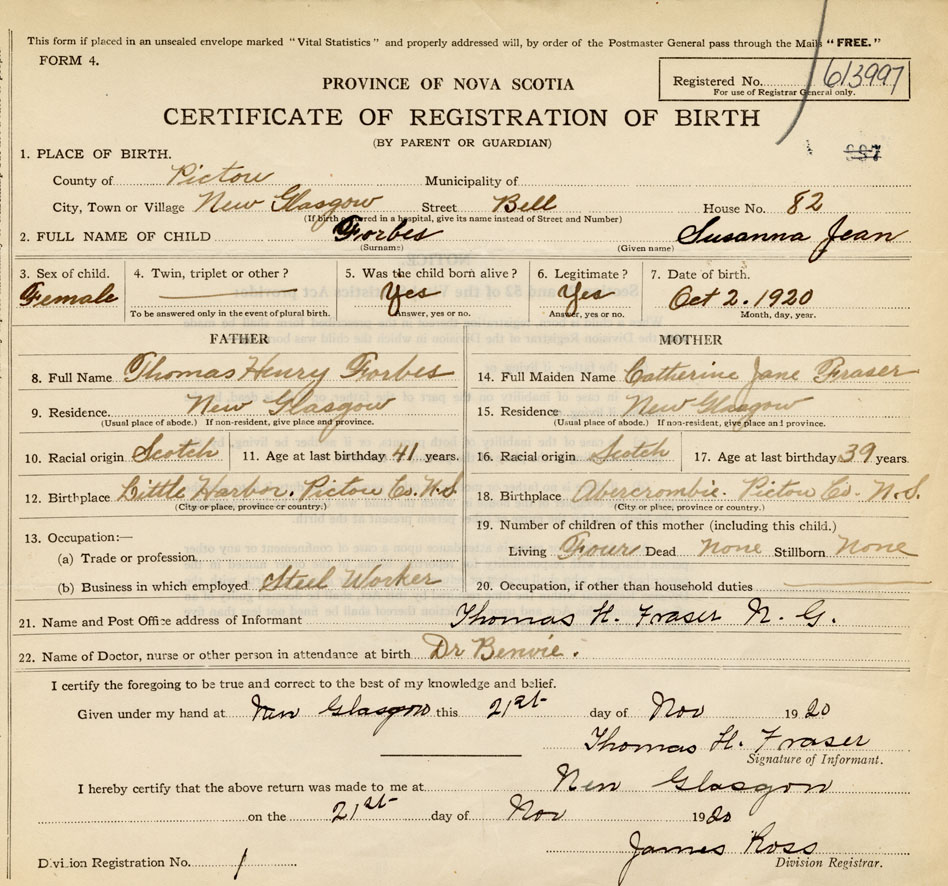 This form if placed in an unsealed envelope marked "Vital Statistics" and properly addressed will, by order of the Postmaster General pass through the Mails "FREE."
FORM 4.
Registered No. 613997
For use of Registrar General only.
PROVINCE OF NOVA SCOTIA
CERTIFICATE OF REGISTRATION OF BIRTH
(BY PARENT OR GUARDIAN)
1. PLACE OF BIRTH.
County of Pictou Municipality of
City, Town or Village New Glasgow Street Bell House No. 82
(If birth occurred in a hospital, give its name instead of Street and Number)
2. FULL NAME OF CHILD Forbes Susanna Jean
(Surname) (Given name)
3. Sex of child. 4. Twin, triplet or other? 5. Was the child born alive? 6. Legitimate? 7. Date of birth.
Female Yes Yes Oct 2. 1920
To be answered only in the event of plural birth. Answer, yes or no. Answer, yes or no. Month, day, year.
FATHER MOTHER
8. Full Name Thomas Henry Forbes 14. Full Maiden Name Catherine Jane Fraser
9. Residence. New Glasgow 15. Residence New Glasgow
(Usual place of abode.) If non-resident, give place and province. (Usual place of abode.) If non-resident, give place and province.
10. Racial origin Scotch 11. Age at last birthday 41 years. 16. Racial origin Scotch 17. Age at last birthday 39 years.
12. Birthplace Little Harbor. Pictou Co. N.S 18. Birthplace Abercrombie. Pictou Co. N.S.
(City or place, province or country.) (City or place, province or country.)
13. Occupation:— 19. Number of children of this mother (including this child.)
(a) Trade or profession Living Four Dead None Stillborn None
(b) Business in which employed Steel Worker 20. Occupation, if other than household duties
21. Name and Post Office address of Informant Thomas H. Fraser N. G.
22. Name of Doctor, nurse or other person in attendance at birth Dr Benvie.
I certify the foregoing to be true and correct to the best of my knowledge and belief.
Given under my hand at New Glasgow this 21st day of Nov 1920
Thomas H. Fraser
Signature of Informant.
I hereby certify that the above return was made to me at New Glasgow
on the 21st day of Nov 1920
James Ross
Division Registration No. 1 Division Registrar.